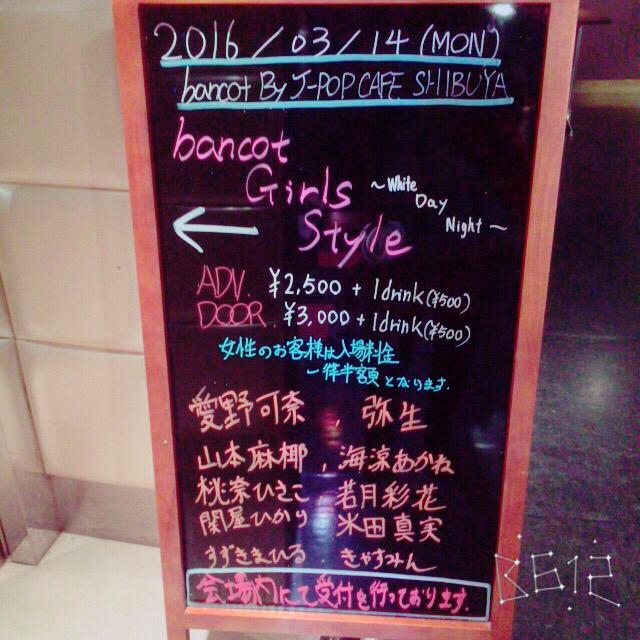 2016/03/14(MON)
bancot By J-POP CAFE SHIBUYA
bancot
Girls
Style
~White
Day
Night~
ADV. ¥2,500 + 1drink(¥500)
DOOR. ¥3,000 + 1drink(¥500)
女性のお客様は入場料金
一律半額となります.
愛野可奈, 弥生
山本麻椰, 海涼あかね
桃奈ひさこ 若月彩花
関屋ひかり 氷田真実
すずきまひる きゃすみん
会場内にて受付を行っております.
B612